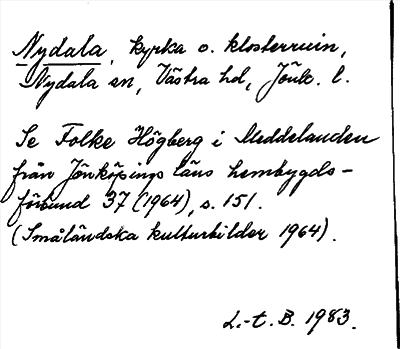 Nydala, kyrka o. klosterruin,
Nydala sn, Västra hd, Jönk. l.
Se Folke Högberg i Meddelanden
från Jönköpings läns hembygds-
förbund 37 (1964), s. 151.
(Småländska kulturbilder 1964).
L.-t. B. 1983.